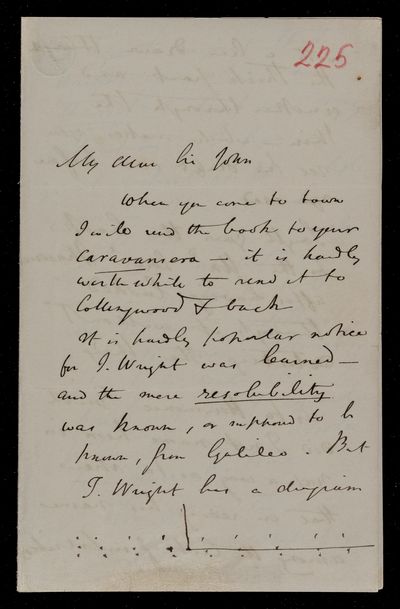 225
My dear Sir John
When you come to town
I will send the book to your
caravansera — it is hardly
worth while to send it to
Collingwood & back
It is hardly popular notice
for T. Wright was learned —
and the mere resolubility
was known, or supposed to be
known, from Galileo. But
T. Wright has a diagram